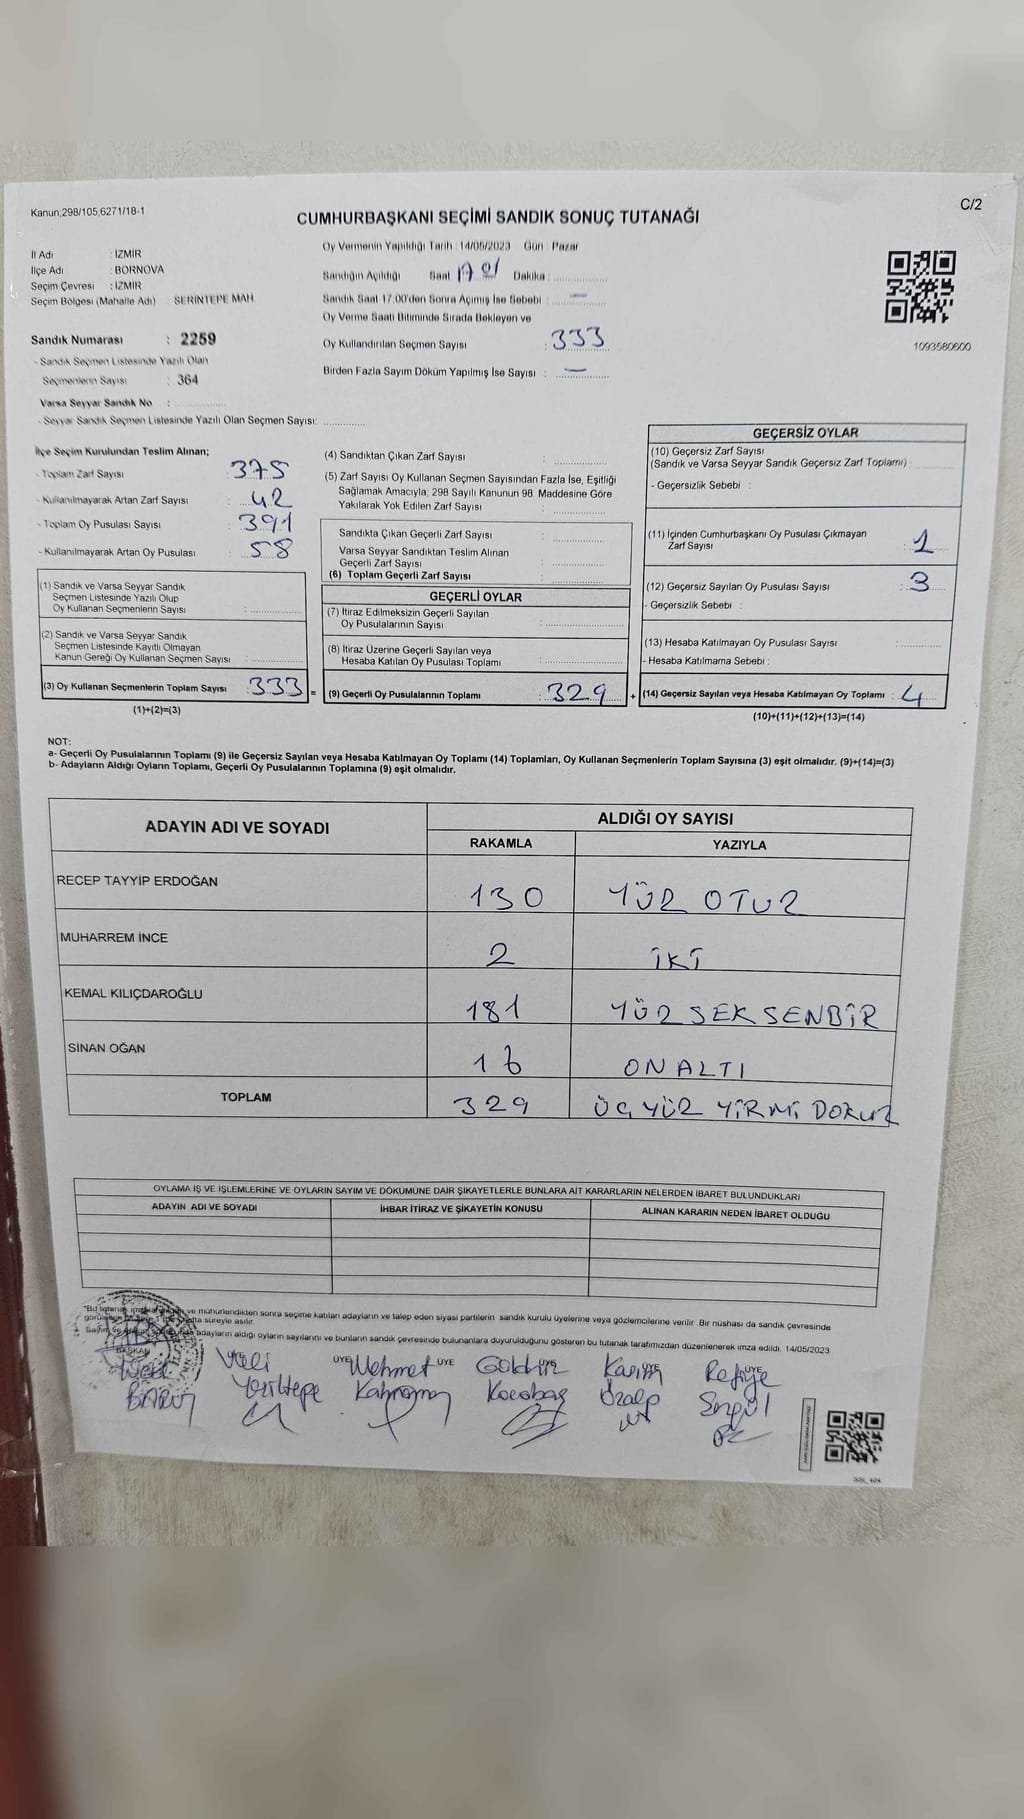 Kanun;298/105,6271/18-1
C/2
CUMHURBAŞKANI SEÇİMİ SANDIK SONUÇ TUTANAĞI
İl Adı : İZMİR
İlçe Adı : BORNOVA
Seçim Çevresi : İZMİR
Seçim Bölgesi (Mahalle Adı) SERİNTEPE MAH
Oy Vermenin Yapıldığı Tarih : 14/05/2023 Gün : Pazar
Sandığın Açıldığı Saat 17 01 Dakika :
Sandık Saat 17.00'den Sonra Açılmış İse Sebebi : —
Oy Verme Saati Bitiminde Sırada Bekleyen ve
Oy Kullandırılan Seçmen Sayısı : 333
Birden Fazla Sayım Döküm Yapılmış İse Sayısı : —
1093580600
Sandık Numarası : 2259
- Sandık Seçmen Listesinde Yazılı Olan
Seçmenlerin Sayısı : 364
Varsa Seyyar Sandık No :
- Seyyar Sandık Seçmen Listesinde Yazılı Olan Seçmen Sayısı:
İlçe Seçim Kurulundan Teslim Alınan;
- Toplam Zarf Sayısı : 375
- Kullanılmayarak Artan Zarf Sayısı : 42
- Toplam Oy Pusulası Sayısı : 391
- Kullanılmayarak Artan Oy Pusulası : 58
(1) Sandık ve Varsa Seyyar Sandık
Seçmen Listesinde Yazılı Olup
Oy Kullanan Seçmenlerin Sayısı :
(2) Sandık ve Varsa Seyyar Sandık
Seçmen Listesinde Kayıtlı Olmayan
Kanun Gereği Oy Kullanan Seçmen Sayısı :
(3) Oy Kullanan Seçmenlerin Toplam Sayısı : 333 =
(1)+(2)=(3)
(4) Sandıktan Çıkan Zarf Sayısı :
(5) Zarf Sayısı Oy Kullanan Seçmen Sayısından Fazla İse, Eşitliği
Sağlamak Amacıyla; 298 Sayılı Kanunun 98. Maddesine Göre
Yakılarak Yok Edilen Zarf Sayısı :
Sandıkta Çıkan Geçerli Zarf Sayısı :
Varsa Seyyar Sandıktan Teslim Alınan
Geçerli Zarf Sayısı :
(6) Toplam Geçerli Zarf Sayısı :
GEÇERLİ OYLAR
(7) İtiraz Edilmeksizin Geçerli Sayılan
Oy Pusulalarının Sayısı :
(8) İtiraz Üzerine Geçerli Sayılan veya
Hesaba Katılan Oy Pusulası Toplamı :
(9) Geçerli Oy Pusulalarının Toplamı : 329 +
GEÇERSİZ OYLAR
(10) Geçersiz Zarf Sayısı
(Sandık ve Varsa Seyyar Sandık Geçersiz Zarf Toplamı) :
- Geçersizlik Sebebi :
(11) İçinden Cumhurbaşkanı Oy Pusulası Çıkmayan
Zarf Sayısı : 1
(12) Geçersiz Sayılan Oy Pusulası Sayısı : 3
- Geçersizlik Sebebi :
(13) Hesaba Katılmayan Oy Pusulası Sayısı :
- Hesaba Katılmama Sebebi :
(14) Geçersiz Sayılan veya Hesaba Katılmayan Oy Toplamı : 4
(10)+(11)+(12)+(13)=(14)
NOT:
a- Geçerli Oy Pusulalarının Toplamı (9) ile Geçersiz Sayılan veya Hesaba Katılmayan Oy Toplamı (14) Toplamları, Oy Kullanan Seçmenlerin Toplam Sayısına (3) eşit olmalıdır. (9)+(14)=(3)
b- Adayların Aldığı Oyların Toplamı, Geçerli Oy Pusulalarının Toplamına (9) eşit olmalıdır.
ADAYIN ADI VE SOYADI
ALDIĞI OY SAYISI
RAKAMLA YAZIYLA
RECEP TAYYİP ERDOĞAN 130 YÜZ OTUZ
MUHARREM İNCE 2 İKİ
KEMAL KILIÇDAROĞLU 181 YÜZ SEKSENBİR
SİNAN OĞAN 16 ONALTI
TOPLAM 329 ÜÇ YÜZ YİRMİ DOKUZ
OYLAMA İŞ VE İŞLEMLERİNE VE OYLARIN SAYIM VE DÖKÜMÜNE DAİR ŞİKAYETLERLE BUNLARA AİT KARARLARIN NELERDEN İBARET BULUNDUKLARI
ADAYIN ADI VE SOYADI İHBAR İTİRAZ VE ŞİKAYETİN KONUSU ALINAN KARARIN NEDEN İBARET OLDUĞU
*Bu tutanak ve mühürlendikten sonra seçime katılan adayların ve talep eden siyasi partilerin sandık kurulu üyelerine veya gözlemcilerine verilir. Bir nüshası da sandık çevresinde
süreyle asılır.
adayların aldığı oyların sayılarını ve bunların sandık çevresinde bulunanlara duyurulduğunu gösteren bu tutanak tarafımızdan düzenlenerek imza edildi. 14/05/2023
BAŞKAN ÜYE ÜYE ÜYE ÜYE ÜYE
Veli Mehmet Refiye
Kahraman Kocabaş Özalp